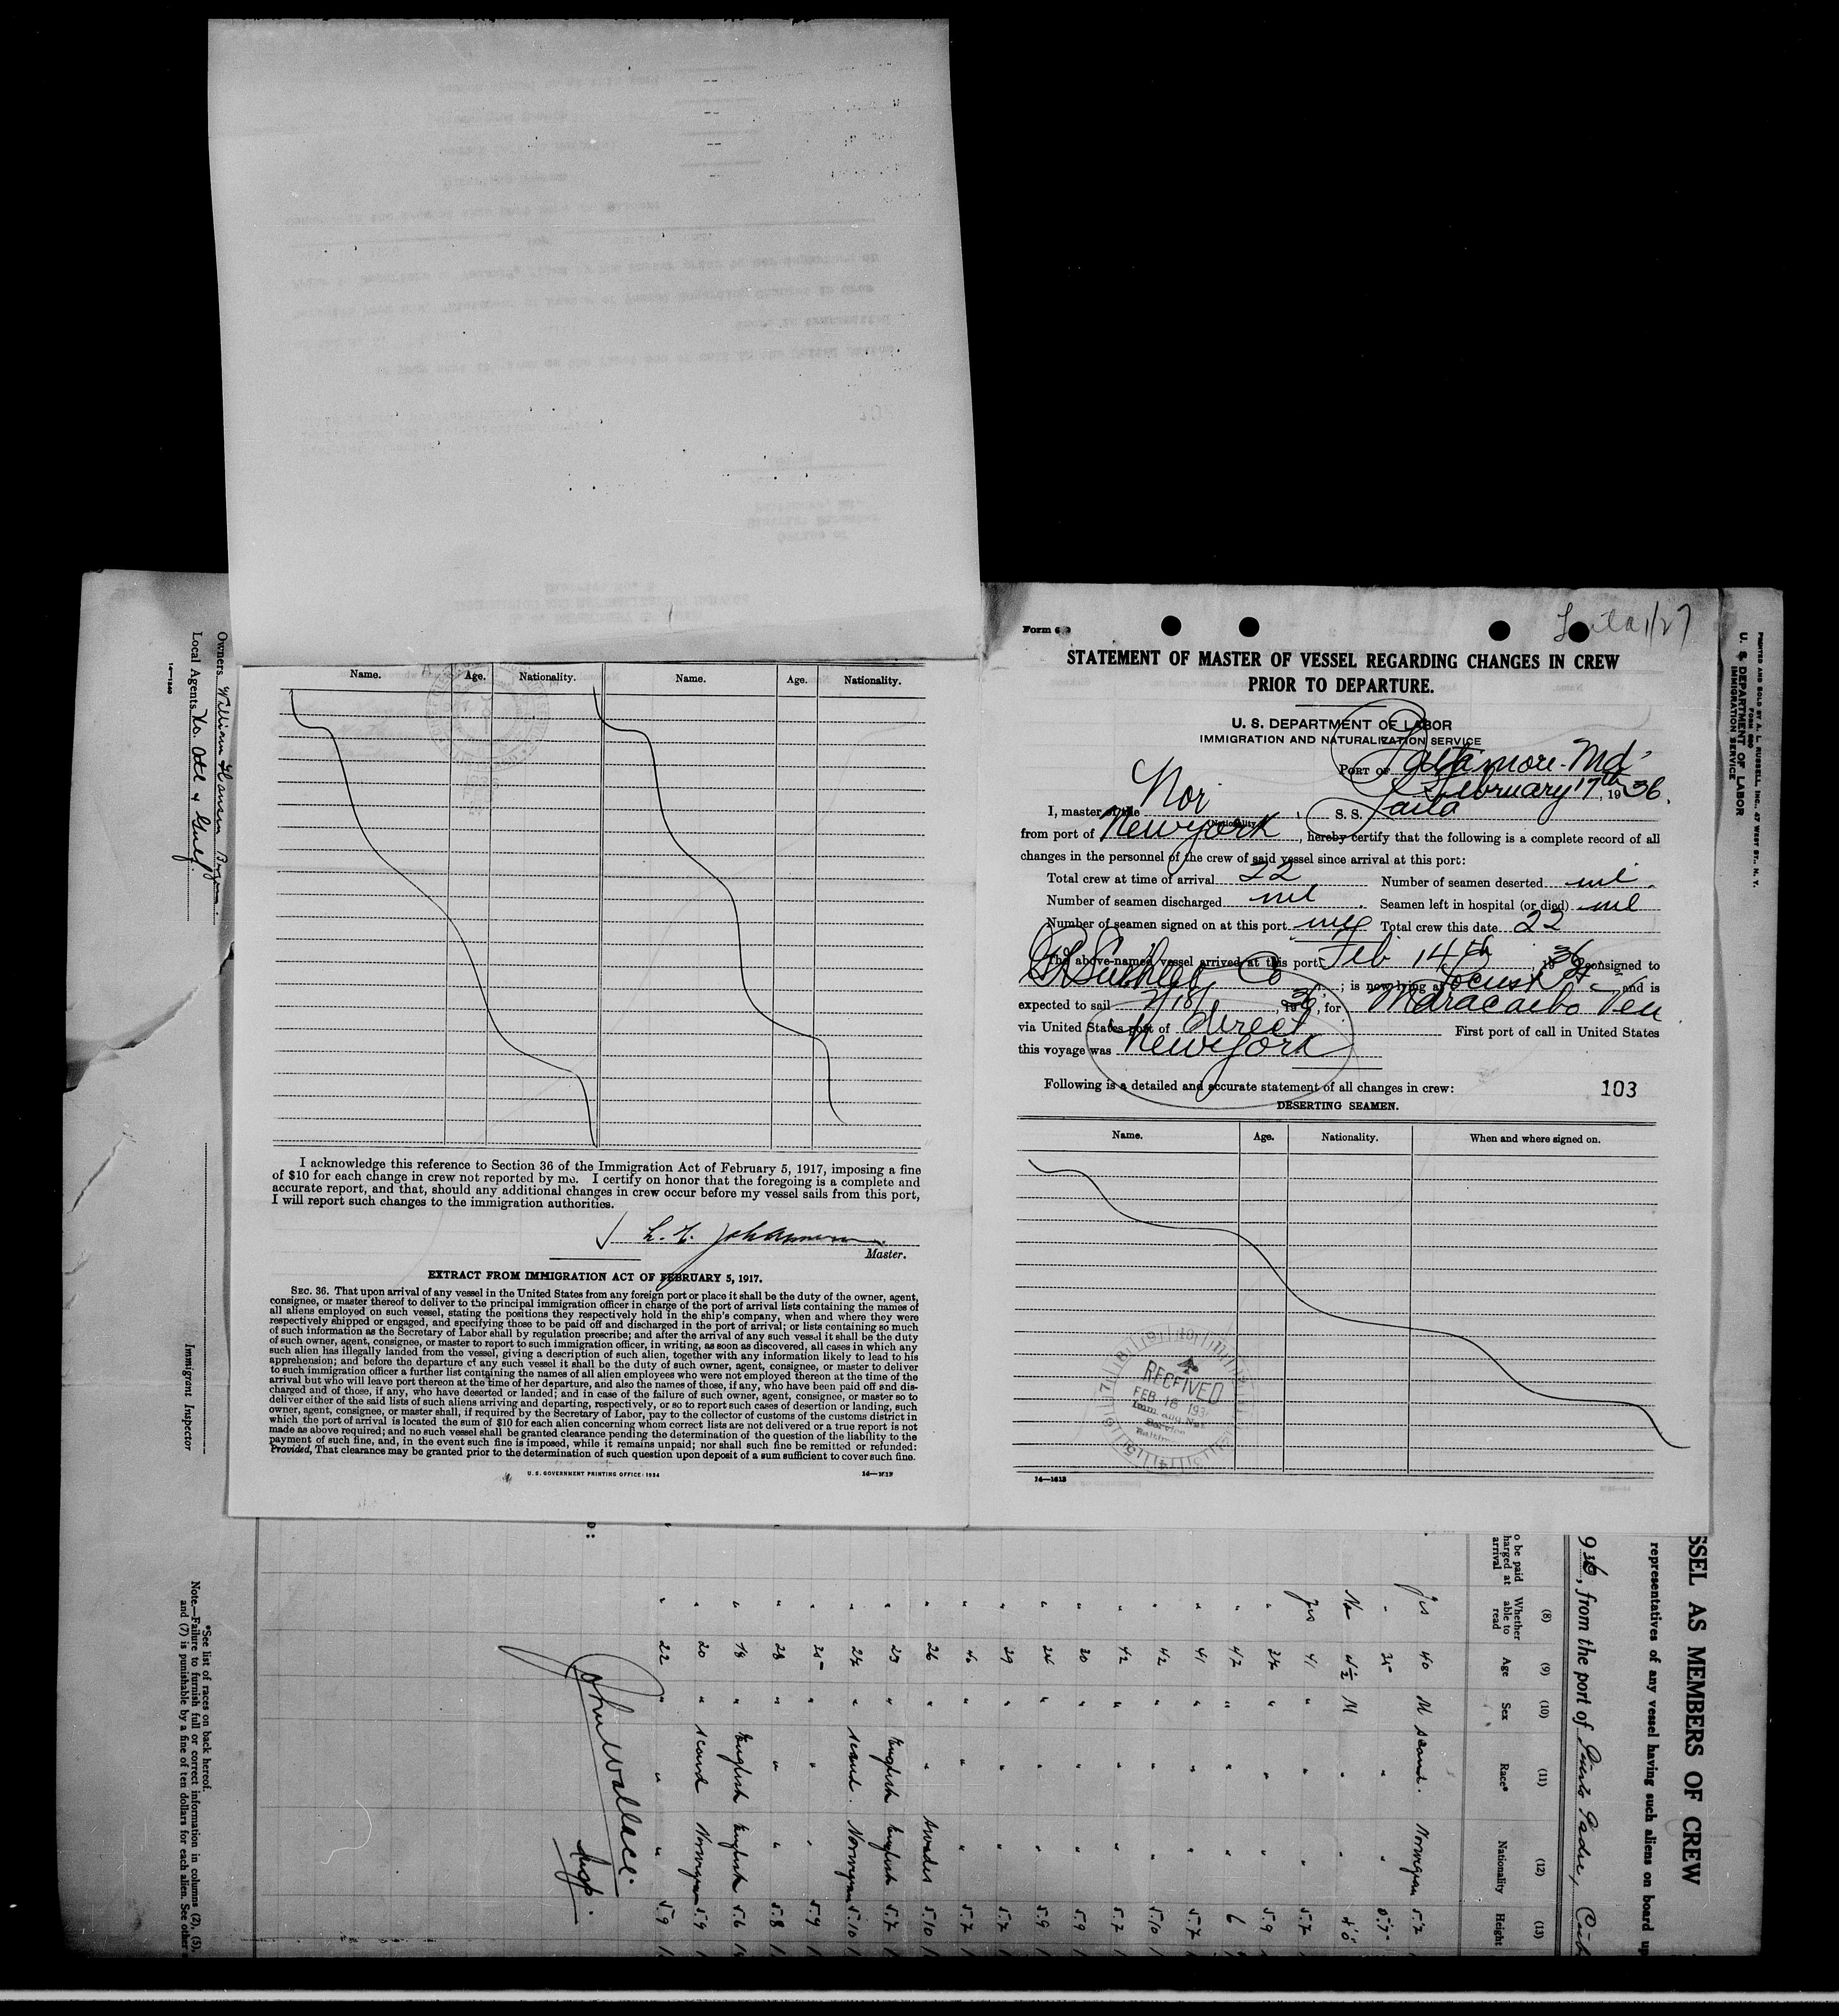 Form 6
Laila 1/27
STATEMENT OF MASTER OF VESSEL REGARDING CHANGES IN CREW
PRIOR TO DEPARTURE.
U. S. DEPARTMENT OF LABOR
IMMIGRATION AND NATURALIZATION SERVICE
PORT OF Baltimore. Md
February 17th, 1936.
I, master of the Nor S. S. Laila
(Nationality)
from port of Newyork, hereby certify that the following is a complete record of all
changes in the personnel of the crew of said vessel since arrival at this port:
Total crew at time of arrival 22 Number of seamen deserted nil.
Number of seamen discharged nil. Seamen left in hospital (or died) nil
Number of seamen signed on at this port nil Total crew this date 22
The above-named vessel arrived at this port Feb 14th, 1936, consigned to
Co; is now lying at Locust Pt and is
expected to sail 2/18/, 1936, for Maracaibo Ven.
via United States port of direct First port of call in United States
this voyage was Newyork
Following is a detailed and accurate statement of all changes in crew:
103
DESERTING SEAMEN.
Name. Age. Nationality. When and where signed on.
RECEIVED
FEB 18 193
Imm. and Nat.
Service
Baltim
14—1613
Name. Age. Nationality. Name. Age. Nationality.
I acknowledge this reference to Section 36 of the Immigration Act of February 5, 1917, imposing a fine
of $10 for each change in crew not reported by me. I certify on honor that the foregoing is a complete and
accurate report, and that, should any additional changes in crew occur before my vessel sails from this port,
I will report such changes to the immigration authorities.
Master.
EXTRACT FROM IMMIGRATION ACT OF FEBRUARY 5, 1917.
SEC. 36. That upon arrival of any vessel in the United States from any foreign port or place it shall be the duty of the owner, agent,
consignee, or master thereof to deliver to the principal immigration officer in charge of the port of arrival lists containing the names of
all aliens employed on such vessel, stating the positions they respectively hold in the ship's company, when and where they were
respectively shipped or engaged, and specifying those to be paid off and discharged in the port of arrival; or lists containing so much
of such information as the Secretary of Labor shall by regulation prescribe; and after the arrival of any such vessel it shall be the duty
of such owner, agent, consignee, or master to report to such immigration officer, in writing, as soon as discovered, all cases in which any
such alien has illegally landed from the vessel, giving a description of such alien, together with any information likely to lead to his
apprehension; and before the departure of any such vessel it shall be the duty of such owner, agent, consignee, or master to deliver
to such immigration officer a further list containing the names of all alien employees who were not employed thereon at the time of the
arrival but who will leave port thereon at the time of her departure, and also the names of those, if any, who have been paid off and dis-
charged and of those, if any, who have deserted or landed; and in case of the failure of such owner, agent, consignee, or master so to
deliver either of the said lists of such aliens arriving and departing, respectively, or so to report such cases of desertion or landing, such
owner, agent, consignee, or master shall, if required by the Secretary of Labor, pay to the collector of customs of the customs district in
which the port of arrival is located the sum of $10 for each alien concerning whom correct lists are not delivered or a true report is not
made as above required; and no such vessel shall be granted clearance pending the determination of the question of the liability to the
payment of such fine, and, in the event such fine is imposed, while it remains unpaid; nor shall such fine be remitted or refunded:
Provided, That clearance may be granted prior to the determination of such question upon deposit of a sum sufficient to cover such fine.
U. S. GOVERNMENT PRINTING OFFICE: 1934
PRINTED AND SOLD BY A. L. RUSSELL, INC., 47 WEST ST., N. Y.
FORM 680
U. S. DEPARTMENT OF LABOR
IMMIGRATION SERVICE
SSEL AS MEMBERS OF CREW
representatives of any vessel having such aliens on board up
936, from the port of Puerto Padre, Cub
(8) (9) (10) (11) (12) (13)
o be paid
harged at
arrival
Whether
able to
read
Age Sex Race* Nationality Height
Yes 40 M Scand. Norwegian 5.7
" 35 " " 5.7
No 4½ M " "
Yes 41 " " " 5.7
" 24 " " " 5.9
" 47 " " " 6
" 41 " " " 5.7
" 42 " " " 5.10
" 42 " " " 5.7
" 20 " " " 5.9
" 24 " " " 5.9
" 29 " " " 5.7
" 40 " " " 5.7
" 26 " " 5.10
" 23 " English English 5.7
" 24 " Scand. Norwegian 5.10
" 25 " " " 5.9
" 28 " " " 5.8
" 18 " English English 5.6
" 20 " Scand Norwegian 5.9
" 22 " " " 5.9
John Wallace.
Insp.
Owners William Hansen Bergen
Local Agents No. Atl & Gulf
14—1240
Immigrant Inspector
*See list of races on back hereof.
Note.—Failure to furnish full or correct information in columns (2), (5),
and (7) is punishable by a fine of ten dollars for each alien. See other